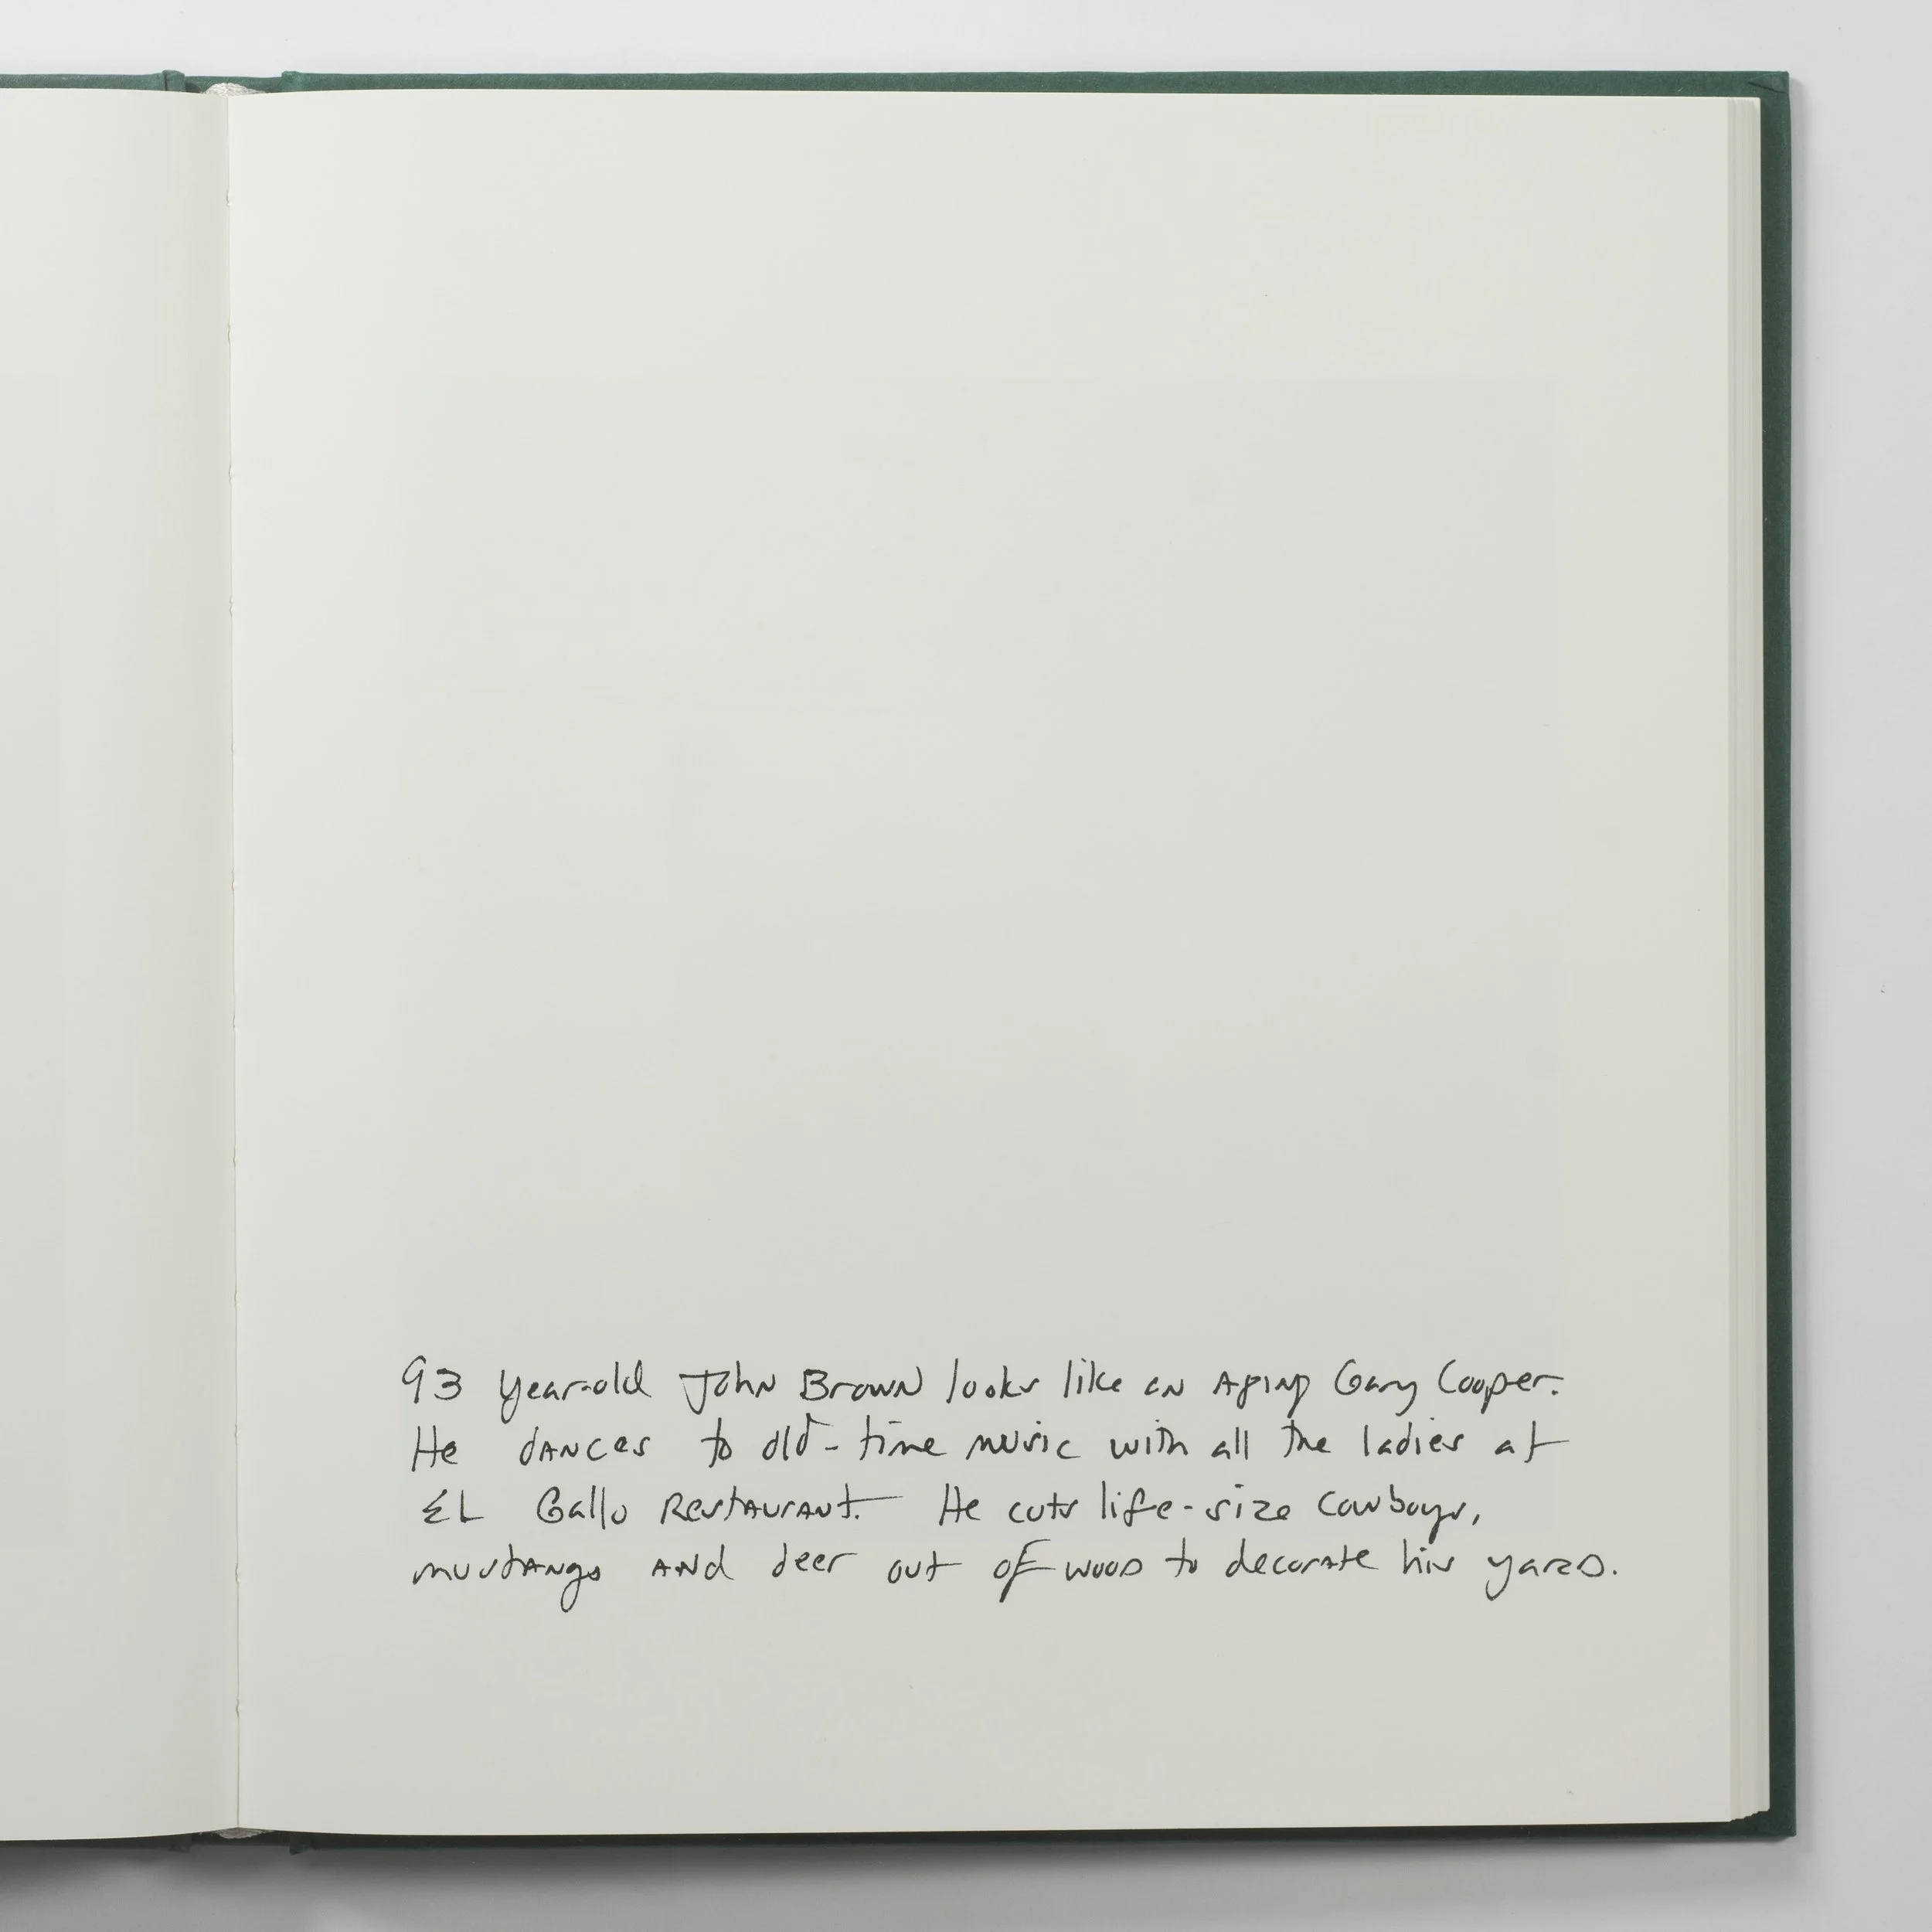 93 year-old John Brown looks like an Aging Gary Cooper.
He dances to old-time music with all the ladies at
EL Gallo Restaurant. He cuts life-size cowboys,
mustangs and deer out of wood to decorate his yard.